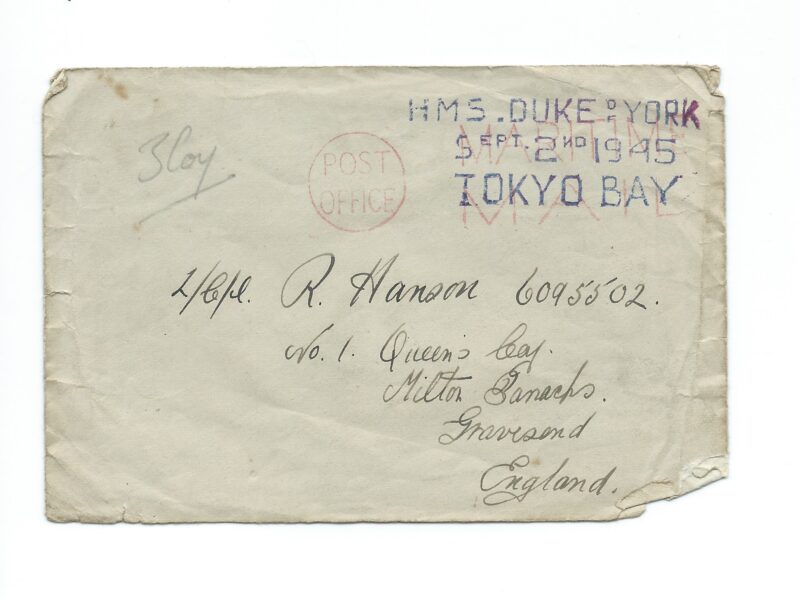 H.M.S. DUKE OF YORK
SEPT. 2ND 1945
TOKYO BAY
MARITIME
MAIL
POST
OFFICE
3 Coy
L/Cpl. R. Hanson 6095502.
No. 1. Queen's Coy.
Milton Barracks.
Gravesend
England.